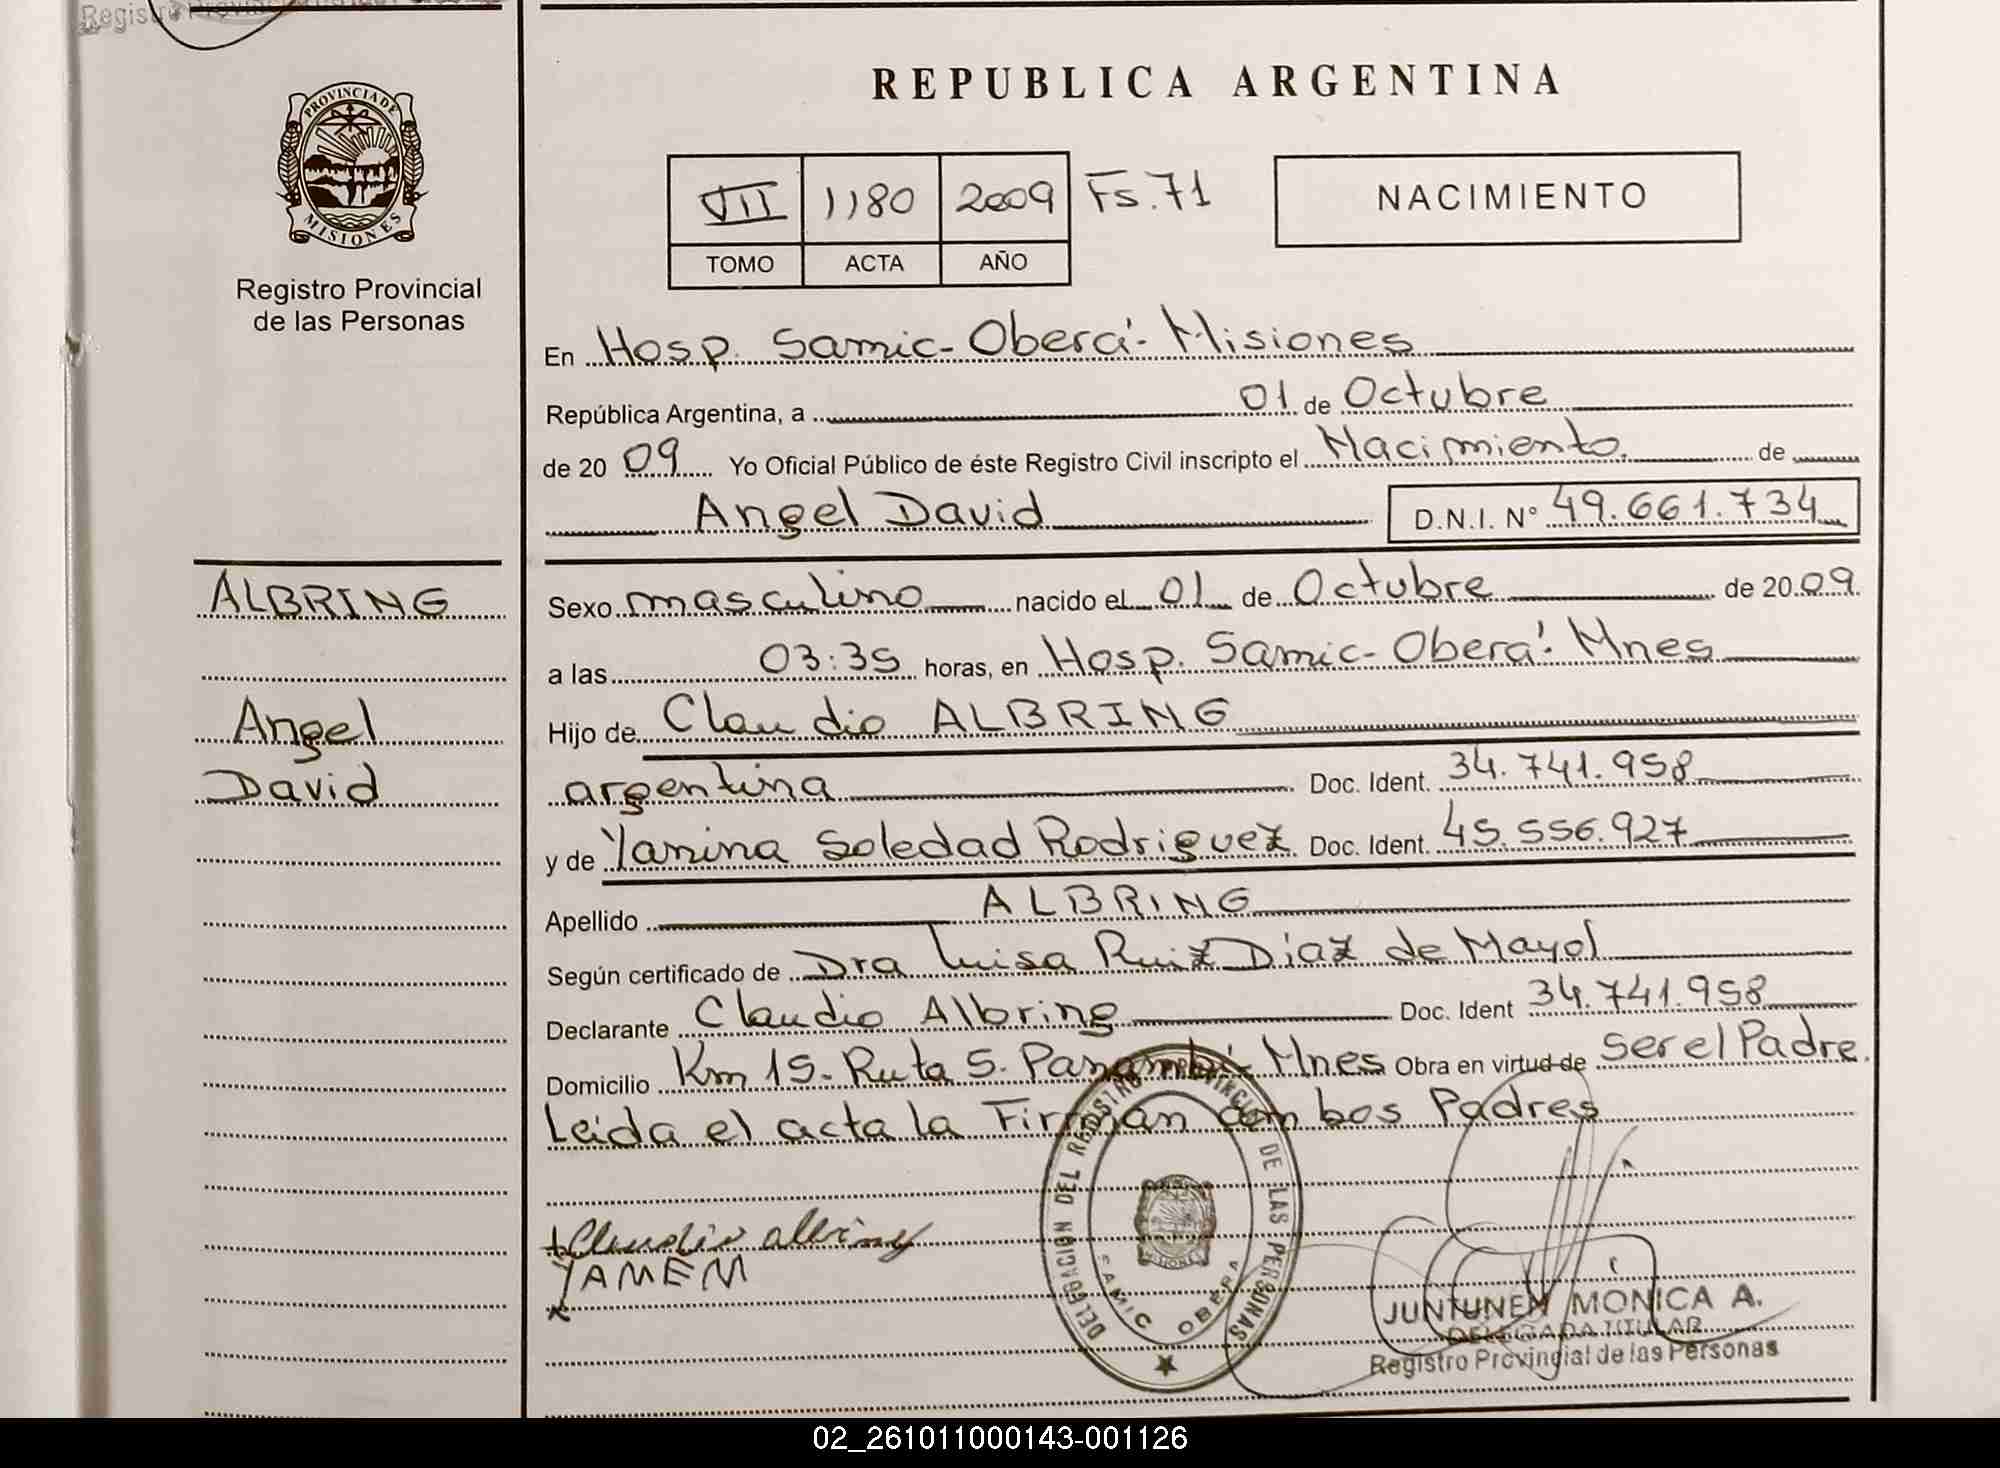 REPUBLICA ARGENTINA
PROVINCIA DE
MISIONES
Registro Provincial
de las Personas
VII 1180 2009 Fs.71
TOMO ACTA AÑO
NACIMIENTO
En Hosp. Samic-Oberá-Misiones
República Argentina, a 01 de Octubre
de 20 09 Yo Oficial Público de éste Registro Civil inscripto el Nacimiento. de
Angel David D.N.I. N° 49.661.734
ALBRING
Angel
David
Sexo masculino nacido el 01 de Octubre de 20 09.
a las 03:35 horas, en Hosp. Samic-Oberá-Mnes
Hijo de Claudio ALBRING
argentina Doc. Ident. 34.741.958
y de Yanina Soledad Rodriguez Doc. Ident. 45.556.927
Apellido ALBRING
Según certificado de Dra Luisa Ruiz Diaz de Mayol
Declarante Claudio Albring Doc. Ident 34.741.958
Domicilio Km 15-Ruta 5. Panambi-Mnes Obra en virtud de ser el Padre.
Leida el acta la Firman ambos Padres
Claudio albring
YAMEM
DELEGACION DEL REGISTRO PROVINCIAL DE LAS PERSONAS
SAMIC OBERA
MISIONES
JUNTUNEN MONICA A.
DELEGADA TITULAR
Registro Provincial de las Personas
02_261011000143-001126